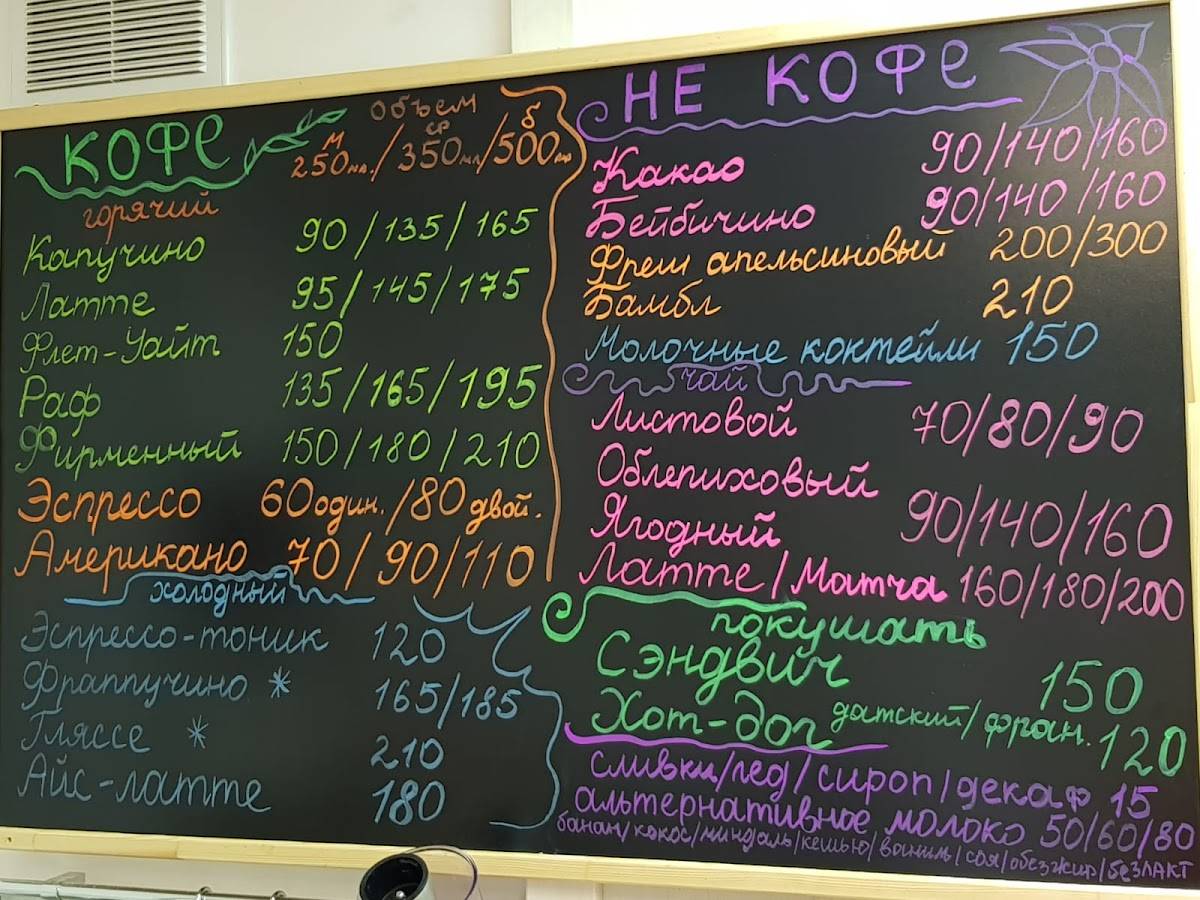 КОФЕ
Объем
м ср б
250мл./350мл/500мл
горячий
Капучино 90/135/165
Латте 95/145/175
Флет-Уайт 150
Раф 135/165/195
Фирменный 150/180/210
Эспрессо 60один./80двой.
Американо 70/90/110
холодный
Эспрессо-тоник 120
Фраппучино * 165/185
Гляссе * 210
Айс-латте 180
НЕ КОФЕ
Какао 90/140/160
Бейбичино 90/140/160
Фреш апельсиновый 200/300
Бамбл 210
Молочные коктейли 150
чай
Листовой 70/80/90
Облепиховый
Ягодный 90/140/160
Латте/Матча 160/180/200
покушать
Сэндвич 150
Хот-дог датский/фран. 120
сливки/лед/сироп/декаф 15
альтернативное молоко 50/60/80
банан/кокос/миндаль/кешью/ваниль/соя/обезжир/безлакт